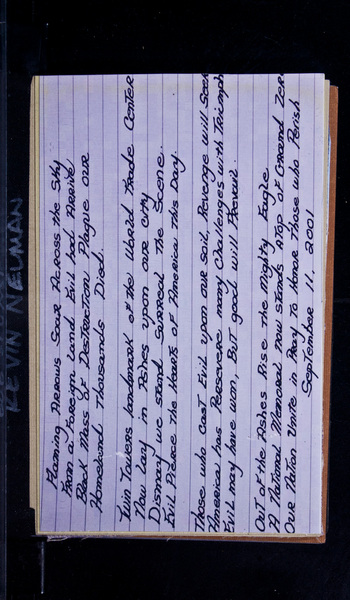 Flaming Arrows Soar Across the Sky
From a Foreign Land Evil had Arrive
Black Mass of Destruction Plague our
Homeland Thousands Died.
Twin Towers landmark of the World Trade Center
Now Lay in Ashes upon our city
Dismay we stand Surreal the Scene.
Evil Pierce the Hearts of America this Day.
Those who Cast Evil upon our soil, Revenge will Seek
America has Persevere many Challenges with Triumph
Evil may have won, But good will Prevail.
Out of the Ashes Rise the Mighty Eagle
A National Memorial now stands Atop of Ground Zero
Our Nation Unite in Pray to Honor Those who Perish
September 11, 2001
KEVIN NEUMAN